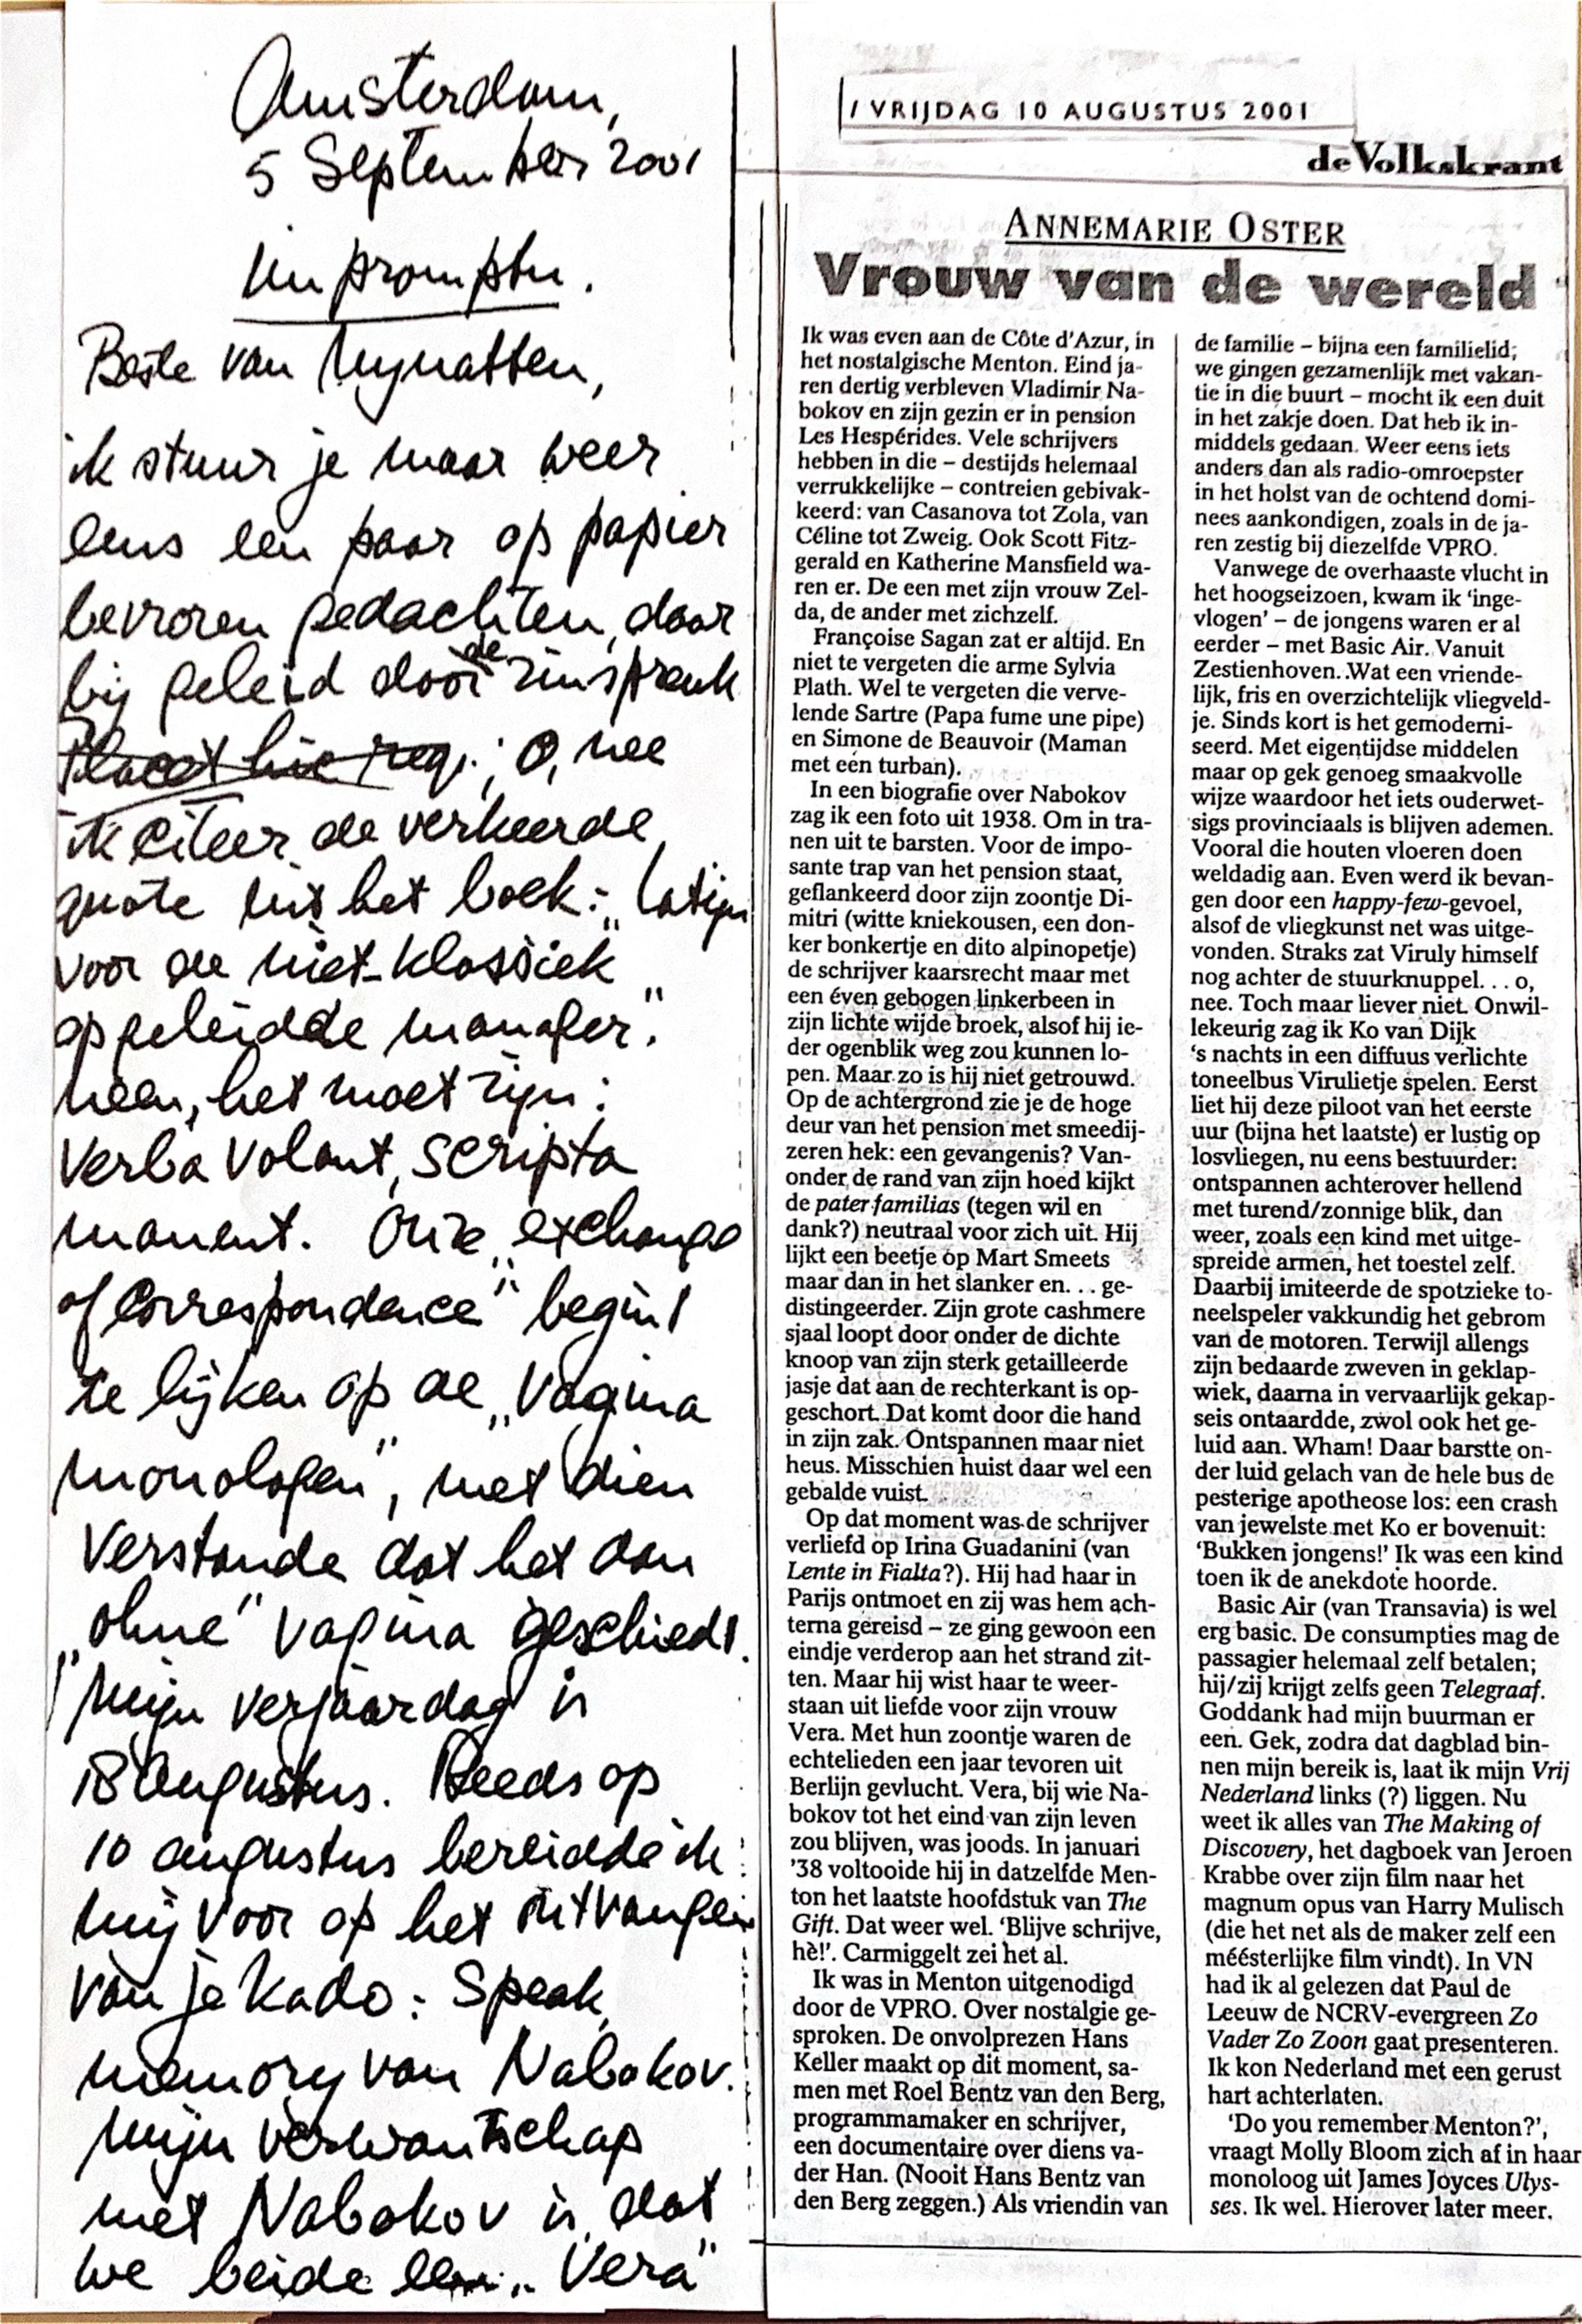 Amsterdam,
5 September 2001
Impromptu.
Beste van Nynatten,
ik stuur je maar weer
eens een paar op papier
bevroren gedachten, daar
bij geleid door de zinspreuk
Placet hic req.; O, nee
ik citeer de verkeerde
quote uit het boek: „Latijn
voor de niet-klassiek
opgeleidde manager."
neen, het moet zijn:
Verba Volant, scripta
manent. Onze „exchange
of Correspondence" begint
te lijken op de „Vagina
monologen", met dien
Verstande dat het dan
„ohne" vagina geschiedt.
Mijn verjaardag is
18 augustus. Reeds op
10 augustus bereidde ik
mij voor op het ontvangen
van je kado: Speak,
memory van Nabokov.
Mijn verwantschap
met Nabokov is dat
we beide een „Vera"
/ VRIJDAG 10 AUGUSTUS 2001
de Volkskrant
ANNEMARIE OSTER
Vrouw van de wereld
Ik was even aan de Côte d'Azur, in
het nostalgische Menton. Eind ja-
ren dertig verbleven Vladimir Na-
bokov en zijn gezin er in pension
Les Hespérides. Vele schrijvers
hebben in die – destijds helemaal
verrukkelijke – contreien gebivak-
keerd: van Casanova tot Zola, van
Céline tot Zweig. Ook Scott Fitz-
gerald en Katherine Mansfield wa-
ren er. De een met zijn vrouw Zel-
da, de ander met zichzelf.
Françoise Sagan zat er altijd. En
niet te vergeten die arme Sylvia
Plath. Wel te vergeten die verve-
lende Sartre (Papa fume une pipe)
en Simone de Beauvoir (Maman
met een turban).
In een biografie over Nabokov
zag ik een foto uit 1938. Om in tra-
nen uit te barsten. Voor de impo-
sante trap van het pension staat,
geflankeerd door zijn zoontje Di-
mitri (witte kniekousen, een don-
ker bonkertje en dito alpinopetje)
de schrijver kaarsrecht maar met
een éven gebogen linkerbeen in
zijn lichte wijde broek, alsof hij ie-
der ogenblik weg zou kunnen lo-
pen. Maar zo is hij niet getrouwd.
Op de achtergrond zie je de hoge
deur van het pension met smeedij-
zeren hek: een gevangenis? Van-
onder de rand van zijn hoed kijkt
de pater familias (tegen wil en
dank?) neutraal voor zich uit. Hij
lijkt een beetje op Mart Smeets
maar dan in het slanker en... ge-
distingeerder. Zijn grote cashmere
sjaal loopt door onder de dichte
knoop van zijn sterk getailleerde
jasje dat aan de rechterkant is op-
geschort. Dat komt door die hand
in zijn zak. Ontspannen maar niet
heus. Misschien huist daar wel een
gebalde vuist.
Op dat moment was de schrijver
verliefd op Irina Guadanini (van
Lente in Fialta?). Hij had haar in
Parijs ontmoet en zij was hem ach-
terna gereisd – ze ging gewoon een
eindje verderop aan het strand zit-
ten. Maar hij wist haar te weer-
staan uit liefde voor zijn vrouw
Vera. Met hun zoontje waren de
echtelieden een jaar tevoren uit
Berlijn gevlucht. Vera, bij wie Na-
bokov tot het eind van zijn leven
zou blijven, was joods. In januari
'38 voltooide hij in datzelfde Men-
ton het laatste hoofdstuk van The
Gift. Dat weer wel. 'Blijve schrijve,
hè!'. Carmiggelt zei het al.
Ik was in Menton uitgenodigd
door de VPRO. Over nostalgie ge-
sproken. De onvolprezen Hans
Keller maakt op dit moment, sa-
men met Roel Bentz van den Berg,
programmamaker en schrijver,
een documentaire over diens va-
der Han. (Nooit Hans Bentz van
den Berg zeggen.) Als vriendin van
de familie – bijna een familielid;
we gingen gezamenlijk met vakan-
tie in die buurt – mocht ik een duit
in het zakje doen. Dat heb ik in-
middels gedaan. Weer eens iets
anders dan als radio-omroepster
in het holst van de ochtend domi-
nees aankondigen, zoals in de ja-
ren zestig bij diezelfde VPRO.
Vanwege de overhaaste vlucht in
het hoogseizoen, kwam ik 'inge-
vlogen' – de jongens waren er al
eerder – met Basic Air. Vanuit
Zestienhoven. Wat een vriende-
lijk, fris en overzichtelijk vliegveld-
je. Sinds kort is het gemoderni-
seerd. Met eigentijdse middelen
maar op gek genoeg smaakvolle
wijze waardoor het iets ouderwet-
sigs provinciaals is blijven ademen.
Vooral die houten vloeren doen
weldadig aan. Even werd ik bevan-
gen door een happy-few-gevoel,
alsof de vliegkunst net was uitge-
vonden. Straks zat Viruly himself
nog achter de stuurknuppel... o,
nee. Toch maar liever niet. Onwil-
lekeurig zag ik Ko van Dijk
's nachts in een diffuus verlichte
toneelbus Virulietje spelen. Eerst
liet hij deze piloot van het eerste
uur (bijna het laatste) er lustig op
losvliegen, nu eens bestuurder:
ontspannen achterover hellend
met turend/zonnige blik, dan
weer, zoals een kind met uitge-
spreide armen, het toestel zelf.
Daarbij imiteerde de spotzieke to-
neelspeler vakkundig het gebrom
van de motoren. Terwijl allengs
zijn bedaarde zweven in geklap-
wiek, daarna in vervaarlijk gekap-
seis ontaardde, zwol ook het ge-
luid aan. Wham! Daar barstte on-
der luid gelach van de hele bus de
pesterige apotheose los: een crash
van jewelste met Ko er bovenuit:
'Bukken jongens!' Ik was een kind
toen ik de anekdote hoorde.
Basic Air (van Transavia) is wel
erg basic. De consumpties mag de
passagier helemaal zelf betalen;
hij/zij krijgt zelfs geen Telegraaf.
Goddank had mijn buurman er
een. Gek, zodra dat dagblad bin-
nen mijn bereik is, laat ik mijn Vrij
Nederland links (?) liggen. Nu
weet ik alles van The Making of
Discovery, het dagboek van Jeroen
Krabbe over zijn film naar het
magnum opus van Harry Mulisch
(die het net als de maker zelf een
méésterlijke film vindt). In VN
had ik al gelezen dat Paul de
Leeuw de NCRV-evergreen Zo
Vader Zo Zoon gaat presenteren.
Ik kon Nederland met een gerust
hart achterlaten.
'Do you remember Menton?',
vraagt Molly Bloom zich af in haar
monoloog uit James Joyces Ulys-
ses. Ik wel. Hierover later meer.